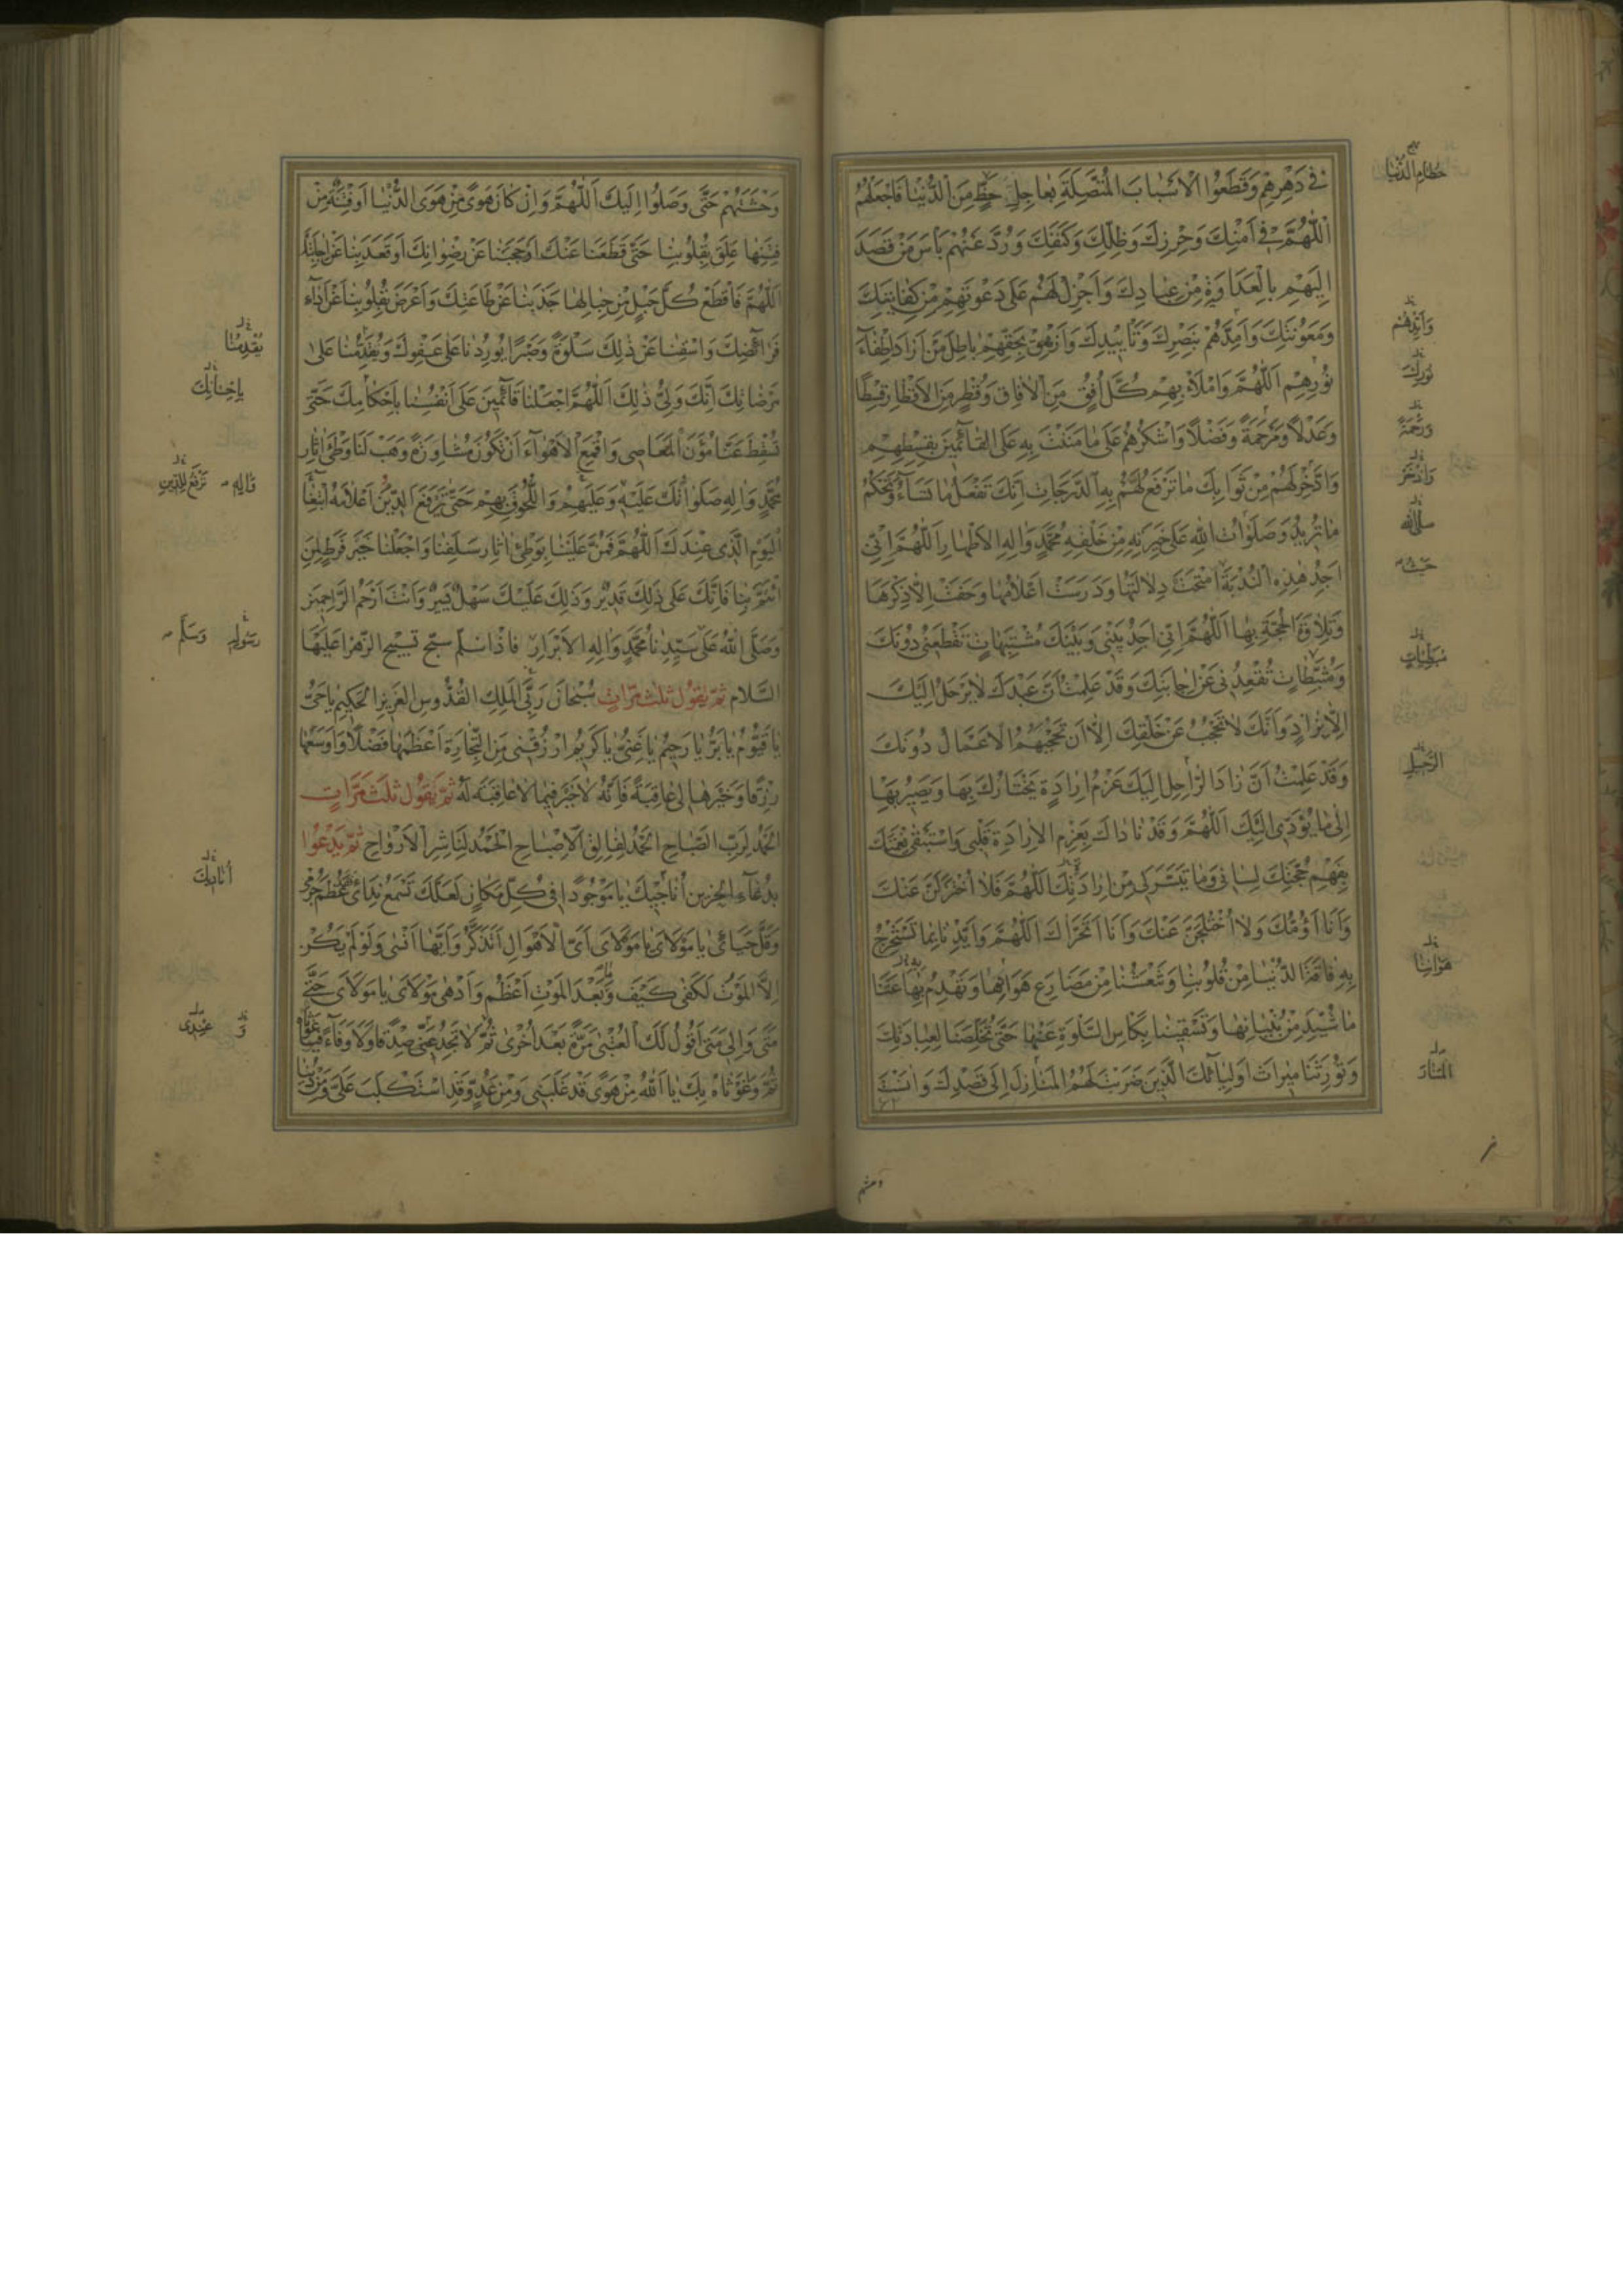 فِي دَهْرِهِمْ وَقَطَعُوا الْأَسْبَابَ الْمُتَّصِلَةَ بِعَاجِلِ حَظٍّ مِنَ الدُّنْيَا فَاجْعَلْهُمُ
اللّٰهُمَّ فِي أَمْنِكَ وَحِرْزِكَ وَظِلِّكَ وَكَنَفِكَ وَرُدَّ عَنْهُمْ بَأْسَ مَنْ قَصَدَ
إِلَيْهِمْ بِالْعَدَاوَةِ مِنْ عِبَادِكَ وَأَجْزِلْ لَهُمْ عَلَى دَعْوَتِهِمْ مِنْ كِفَايَتِكَ
وَمَعُونَتِكَ وَأَمِدَّهُمْ بِنَصْرِكَ وَتَأْيِيدِكَ وَأَزْهِقْ بِحَقِّهِمْ بَاطِلَ مَنْ أَرَادَ إِطْفَاءَ
نُورِهِمْ اَللّٰهُمَّ وَامْلَأْ بِهِمْ كُلَّ أُفُقٍ مِنَ الْآفَاقِ وَقُطْرٍ مِنَ الْأَقْطَارِ قِسْطًا
وَعَدْلًا وَمَرْحَمَةً وَفَضْلًا وَاشْكُرْهُمْ عَلَى مَا مَنَنْتَ بِهِ عَلَى الْقَائِمِينَ بِقِسْطِهِمْ
وَادَّخِرْ لَهُمْ مِنْ ثَوَابِكَ مَا تَرْفَعُ لَهُمْ بِهِ الدَّرَجَاتِ إِنَّكَ تَفْعَلُ مَا تَشَاءُ وَتَحْكُمُ
مَا تُرِيدُ وَصَلَوَاتُ اللهِ عَلَى خِيَرَتِهِ مِنْ خَلْقِهِ مُحَمَّدٍ وَآلِهِ الْأَطْهَارِ اَللّٰهُمَّ إِنِّي
أَجِدُ هٰذِهِ النُّدْبَةَ امْتَحَتْ دِلَالَتُهَا وَدَرَسَتْ أَعْلَامُهَا وَعَفَتْ إِلَّا ذِكْرَهَا
وَتِلَاوَةَ الْحُجَّةِ بِهَا اَللّٰهُمَّ إِنِّي أَجِدُ بَيْنِي وَبَيْنَكَ مُشْتَبِهَاتٍ تَقْطَعُنِي دُونَكَ
وَمُثَبِّطَاتٍ تُقْعِدُنِي عَنْ إِجَابَتِكَ وَقَدْ عَلِمْتُ أَنَّ عَبْدَكَ لَا يَرْحَلُ إِلَيْكَ
إِلَّا بِزَادٍ وَأَنَّكَ لَا تَحْجُبُ عَنْ خَلْقِكَ إِلَّا أَنْ تَحْجُبَهُمُ الْأَعْمَالُ دُونَكَ
وَقَدْ عَلِمْتُ أَنَّ زَادَ الرَّاحِلِ إِلَيْكَ عَزْمُ إِرَادَةٍ يَخْتَارُكَ بِهَا وَيَصِيرُ بِهَا
إِلَى مَا يُؤَدِّي إِلَيْكَ اَللّٰهُمَّ وَقَدْ نَادَاكَ بِعَزْمِ الْإِرَادَةِ قَلْبِي وَاسْتَبْقَى نِعْمَتَكَ
بِفَهْمِ حُجَّتِكَ لِسَانِي وَمَا تَيَسَّرَ لِي مِنْ إِرَادَتِكَ اَللّٰهُمَّ فَلَا أُخْتَزَلَنَّ عَنْكَ
وَأَنَا أَؤُمُّكَ وَلَا أُخْتَلَجَنَّ عَنْكَ وَأَنَا أَتَحَرَّاكَ اَللّٰهُمَّ وَأَيِّدْنَا بِمَا تَسْتَخْرِجُ
بِهِ فَاقَةَ الدُّنْيَا مِنْ قُلُوبِنَا وَتَنْعَشُنَا مِنْ مَصَارِعِ هَوَانِهَا وَتَهْدِمُ بِهَا عَنَّا
مَا شُيِّدَ مِنْ بُنْيَانِهَا وَتَسْقِيَنَا بِكَأْسِ السَّلْوَةِ عَنْهَا حَتَّى تُخَلِّصَنَا لِعِبَادَتِكَ
وَتُورِثَنَا مِيرَاثَ أَوْلِيَائِكَ الَّذِينَ ضَرَبْتَ لَهُمُ الْمَنَازِلَ إِلَى قَصْدِكَ وَآنَسْتَ
حُطَامِ الدُّنْيَا
وَأَيِّدْهُمْ
نُورِكَ
وَرَحْمَةً
وَادْخَرْ
صلى الله
الرَّحِيلِ
هَوَانِنَا
الْمَنَارَ
وَحْشَتَهُمْ حَتَّى وَصَلُوا إِلَيْكَ اَللّٰهُمَّ وَإِنْ كَانَ هَوًى مِنْ هَوَى الدُّنْيَا أَوْ فِتْنَةٌ مِنْ
فِتَنِهَا عَلِقَ بِقُلُوبِنَا حَتَّى قَطَعَنَا عَنْكَ أَوْ حَجَبَنَا عَنْ رِضْوَانِكَ أَوْ قَعَدَ بِنَا عَنْ إِجَابَتِكَ
اَللّٰهُمَّ فَاقْطَعْ كُلَّ حَبْلٍ مِنْ حِبَالِهَا جَذَبَنَا عَنْ طَاعَتِكَ وَأَعْرَضَ بِقُلُوبِنَا عَنْ أَدَاءِ
فَرَائِضِكَ وَاسْقِنَا عَنْ ذٰلِكَ سَلْوَةً وَصَبْرًا يُورِدُنَا عَلَى عَفْوِكَ وَيُقَدِّمُنَا عَلَى
مَرْضَاتِكَ إِنَّكَ وَلِيُّ ذٰلِكَ اَللّٰهُمَّ اجْعَلْنَا قَائِمِينَ عَلَى أَنْفُسِنَا بِأَحْكَامِكَ حَتَّى
تُسْقِطَ عَنَّا مُؤَنَ الْمَعَاصِي وَاقْمَعِ الْأَهْوَاءَ أَنْ تَكُونَ مُسَاوِرَةً وَهَبْ لَنَا وَطْءَ آثَارِ
مُحَمَّدٍ وَآلِهِ صَلَوَاتُكَ عَلَيْهِ وَعَلَيْهِمْ وَاللُّحُوقَ بِهِمْ حَتَّى تَرْفَعَ الدِّينُ أَعْلَامَهُ ابْتِغَاءَ
الْيَوْمِ الَّذِي عِنْدَكَ اَللّٰهُمَّ فَمُنَّ عَلَيْنَا بِوَطْئِ آثَارِ سَلَفِنَا وَاجْعَلْنَا خَيْرَ فَرَطٍ لِمَنِ
ائْتَمَّ بِنَا فَإِنَّكَ عَلَى ذٰلِكَ قَدِيرٌ وَذٰلِكَ عَلَيْكَ سَهْلٌ يَسِيرٌ وَأَنْتَ أَرْحَمُ الرَّاحِمِينَ
وَصَلَّى اللهُ عَلَى سَيِّدِنَا مُحَمَّدٍ وَآلِهِ الْأَبْرَارِ فَإِذَا سَلَّمَ سَبَّحَ تَسْبِيحَ الزَّهْرَاءِ عَلَيْهَا
السَّلَامُ ثُمَّ يَقُولُ ثَلٰثَ مَرَّاتٍ سُبْحَانَ رَبِّيَ الْمَلِكِ الْقُدُّوسِ الْعَزِيزِ الْحَكِيمِ يَا حَيُّ
يَا قَيُّومُ يَا بَرُّ يَا رَحِيمُ يَا غَنِيُّ يَا كَرِيمُ ارْزُقْنِي مِنَ التِّجَارَةِ أَعْظَمَهَا فَضْلًا وَأَوْسَعَهَا
رِزْقًا وَخَيْرَهَا لِي عَاقِبَةً فَإِنَّهُ لَا خَيْرَ فِيمَا لَا عَاقِبَةَ لَهُ ثُمَّ يَقُولُ ثَلٰثَ مَرَّاتٍ
الْحَمْدُ لِرَبِّ الصَّبَاحِ الْحَمْدُ لِفَالِقِ الْإِصْبَاحِ الْحَمْدُ لِنَاشِرِ الْأَرْوَاحِ ثُمَّ يَدْعُوا
بِدُعَاءِ الْحَزِينِ أُنَاجِيكَ يَا مَوْجُودًا فِي كُلِّ مَكَانٍ لَعَلَّكَ تَسْمَعُ نِدَائِي فَقَدْ عَظُمَ جُرْمِي
وَقَلَّ حَيَائِي يَا مَوْلَايَ يَا مَوْلَايَ أَيَّ الْأَهْوَالِ أَتَذَكَّرُ وَأَيَّهَا أَنْسَى وَلَوْ لَمْ يَكُنْ
إِلَّا الْمَوْتُ لَكَفَى كَيْفَ وَمَا بَعْدَ الْمَوْتِ أَعْظَمُ وَأَدْهَى مَوْلَايَ يَا مَوْلَايَ حَتَّى
مَتَى وَإِلَى مَتَى أَقُولُ لَكَ الْعُتْبَى مَرَّةً بَعْدَ أُخْرَى ثُمَّ لَا تَجِدُ عِنْدِي صِدْقًا وَلَا وَفَاءً فَيَا غَوْثَاهُ
ثُمَّ وَا غَوْثَاهُ بِكَ يَا اَللهُ مِنْ هَوًى قَدْ غَلَبَنِي وَمِنْ عَدُوٍّ قَدِ اسْتَكْلَبَ عَلَيَّ وَمِنْ دُنْيَا
يُقْدِمُنَا
وَآلِهِ تَرْفَعُ لِلدِّينِ
رَسُولِهِ وَسَلَّمَ
أُنَادِيكَ
وَ عِنْدِي